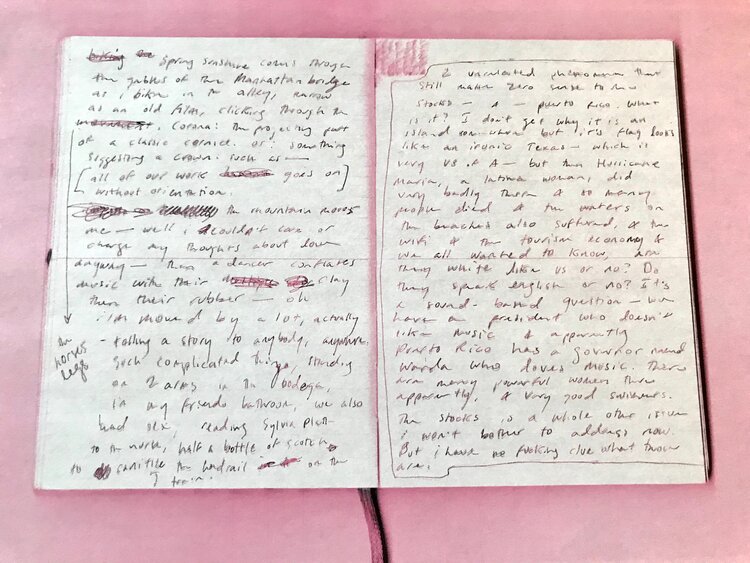 Spring sunshine comes through
the gables of the Manhattan bridge
as i bike in the alley, narrow
as an old film, clicking through the
Corona: the projecting part
of a classic cornice. or: something
suggesting a crown: such as —
[all of our work goes on
without orientation.]
the mountain moves
me — well, i couldn't care or
change my thoughts about love
anyway — then a dancer conflates
music with their clay
then their rubber — oh
i'm moved by a lot, actually
- telling a story to anybody, anywhere.
Such complicated things, standing
on 2 arms in the bodega,
in my friends bathroom, we also
had sex, reading Sylvia Plath
to the nurse, half a bottle of scotch
to the handrail on the
train.
the
horses
legs
2 unrelated phenomenon that
still make zero sense to me
stocks — & — puerto Rico. What
is it? I don't get why it is an
island somewhere but it's flag looks
like an ironic Texas — which is
very US of A — but then Hurricane
Maria, a latina woman, did
very badly there & so many
people died & the waters on
the beaches also suffered, & the
wifi & the tourism economy &
we all wanted to know, are
they white like us or no? Do
they speak english or no? It's
a sound-based question — we
have a president who doesn't
like music & apparently
Puerto Rico has a Governor named
Wanda who loves music. There
are many powerful women there
apparently, & very good swimmers.
The stocks is a whole other issue
i won't bother to address now.
But i have no fucking clue what those
are.